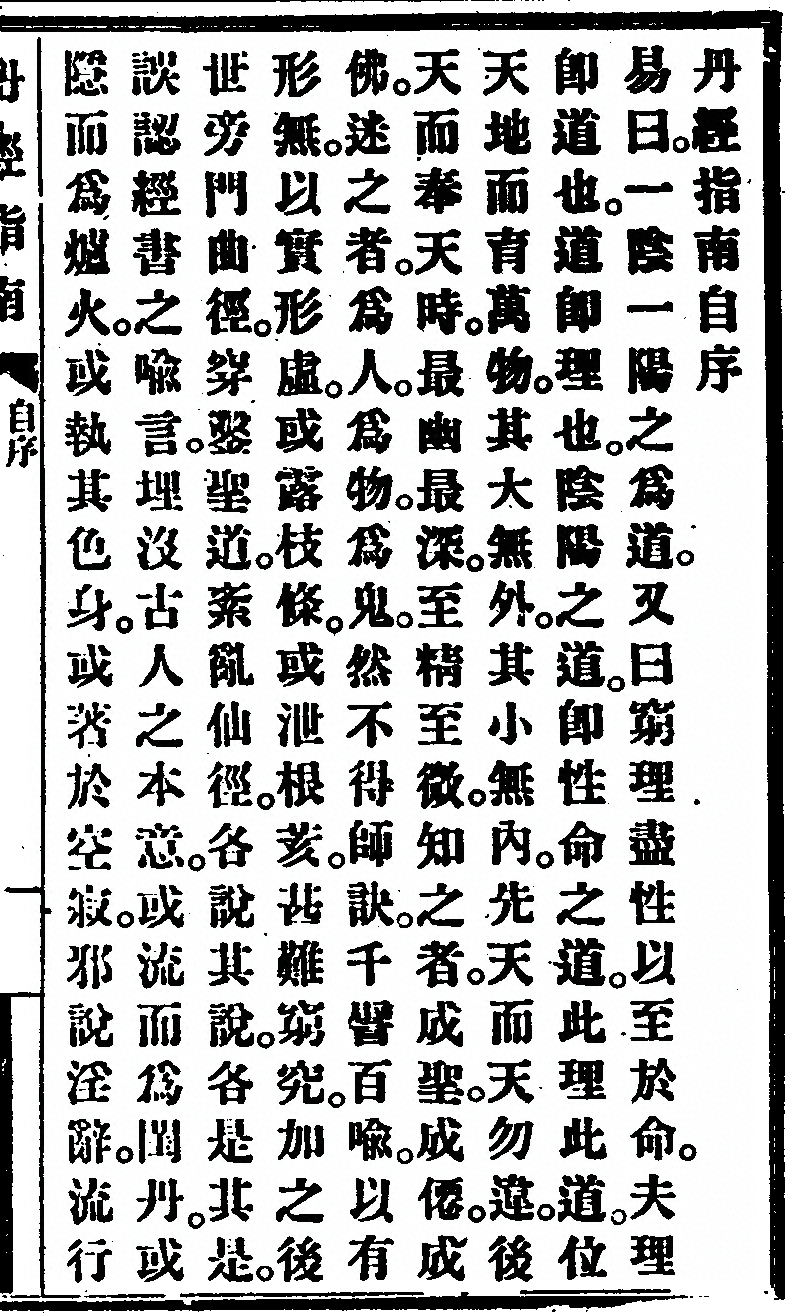 丹經指南自序
易曰。一陰一陽之爲道。又曰窮理盡性以至於命。夫理
卽道也。道卽理也。陰陽之道。卽性命之道。此理此道。位
天地而育萬物。其大無外。其小無內。先天而天勿違。後
天而奉天時。最幽最深。至精至微。知之者。成聖。成僊。成
佛。迷之者。爲人。爲物。爲鬼。然不得師訣。千譬百喩。以有
形無。以實形虛。或露枝條。或泄根荄。甚難窮究。加之後
世旁門曲徑。穿鑿聖道。紊亂仙徑。各說其說。各是其是。
誤認經書之喩言。埋沒古人之本意。或流而爲閨丹。或
隱而爲爐火。或執其色身。或著於空寂。邪說淫辭。流行
丹經指南
自序
一